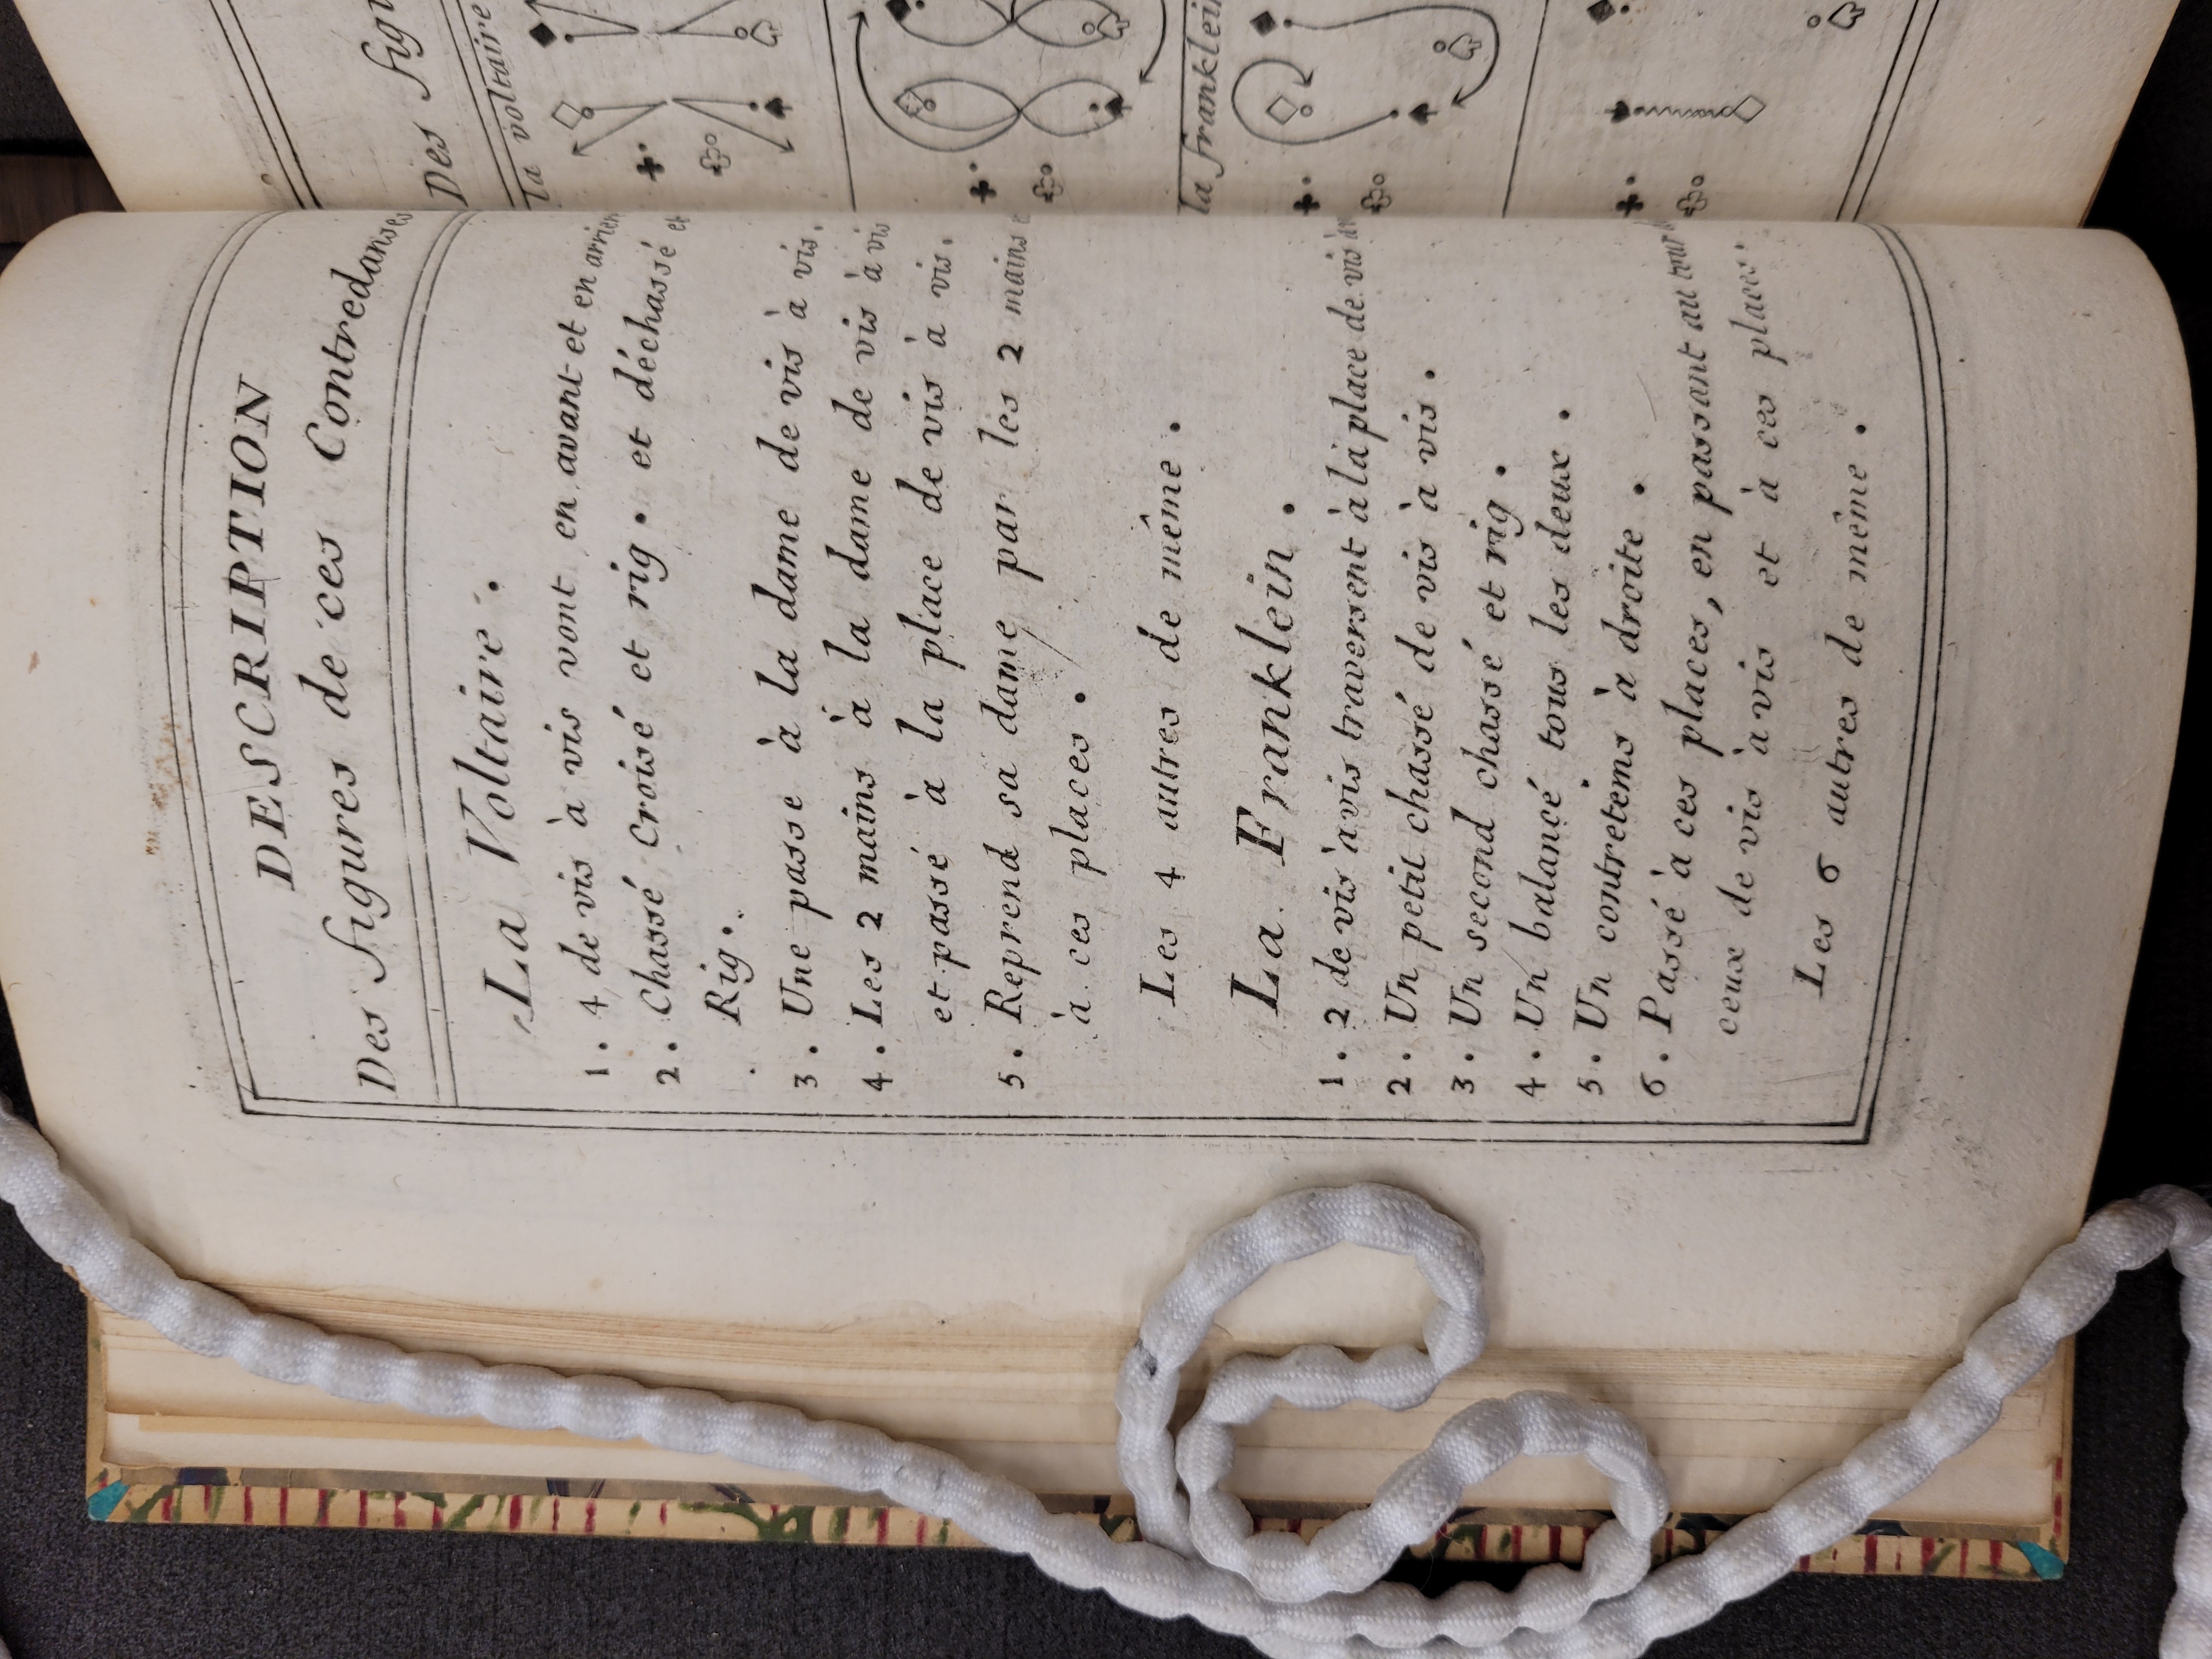 DESCRIPTION
Des figures de ces Contredanses
La Voltaire.
1. 4 de vis à vis vont en avant et en arrier
2. Chassé Croisé et rig. et déchassé et
Rig.
3. Une passe à la dame de vis à vis.
4. Les 2 mains à la dame de vis à vis
et passé à la place de vis à vis.
5. Reprend sa dame par les 2 mains e
à ces places.
Les 4 autres de même.
La Franklein.
1. 2 de vis à vis traversent à la place de vis à
2. Un petit chassé de vis à vis.
3. Un second chassé et rig.
4. Un balancé tous les deux.
5. Un contretems à droite.
6. Passé à ces places, en passant au tour
ceux de vis à vis et à ces places.
Les 6 autres de même.
Des figu
la voltaire
la franklein